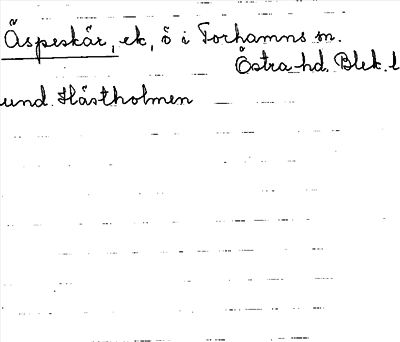 Äspeskär, ek, ö i Torhamns sn.
Östra hd. Blek. l
und. Hästholmen